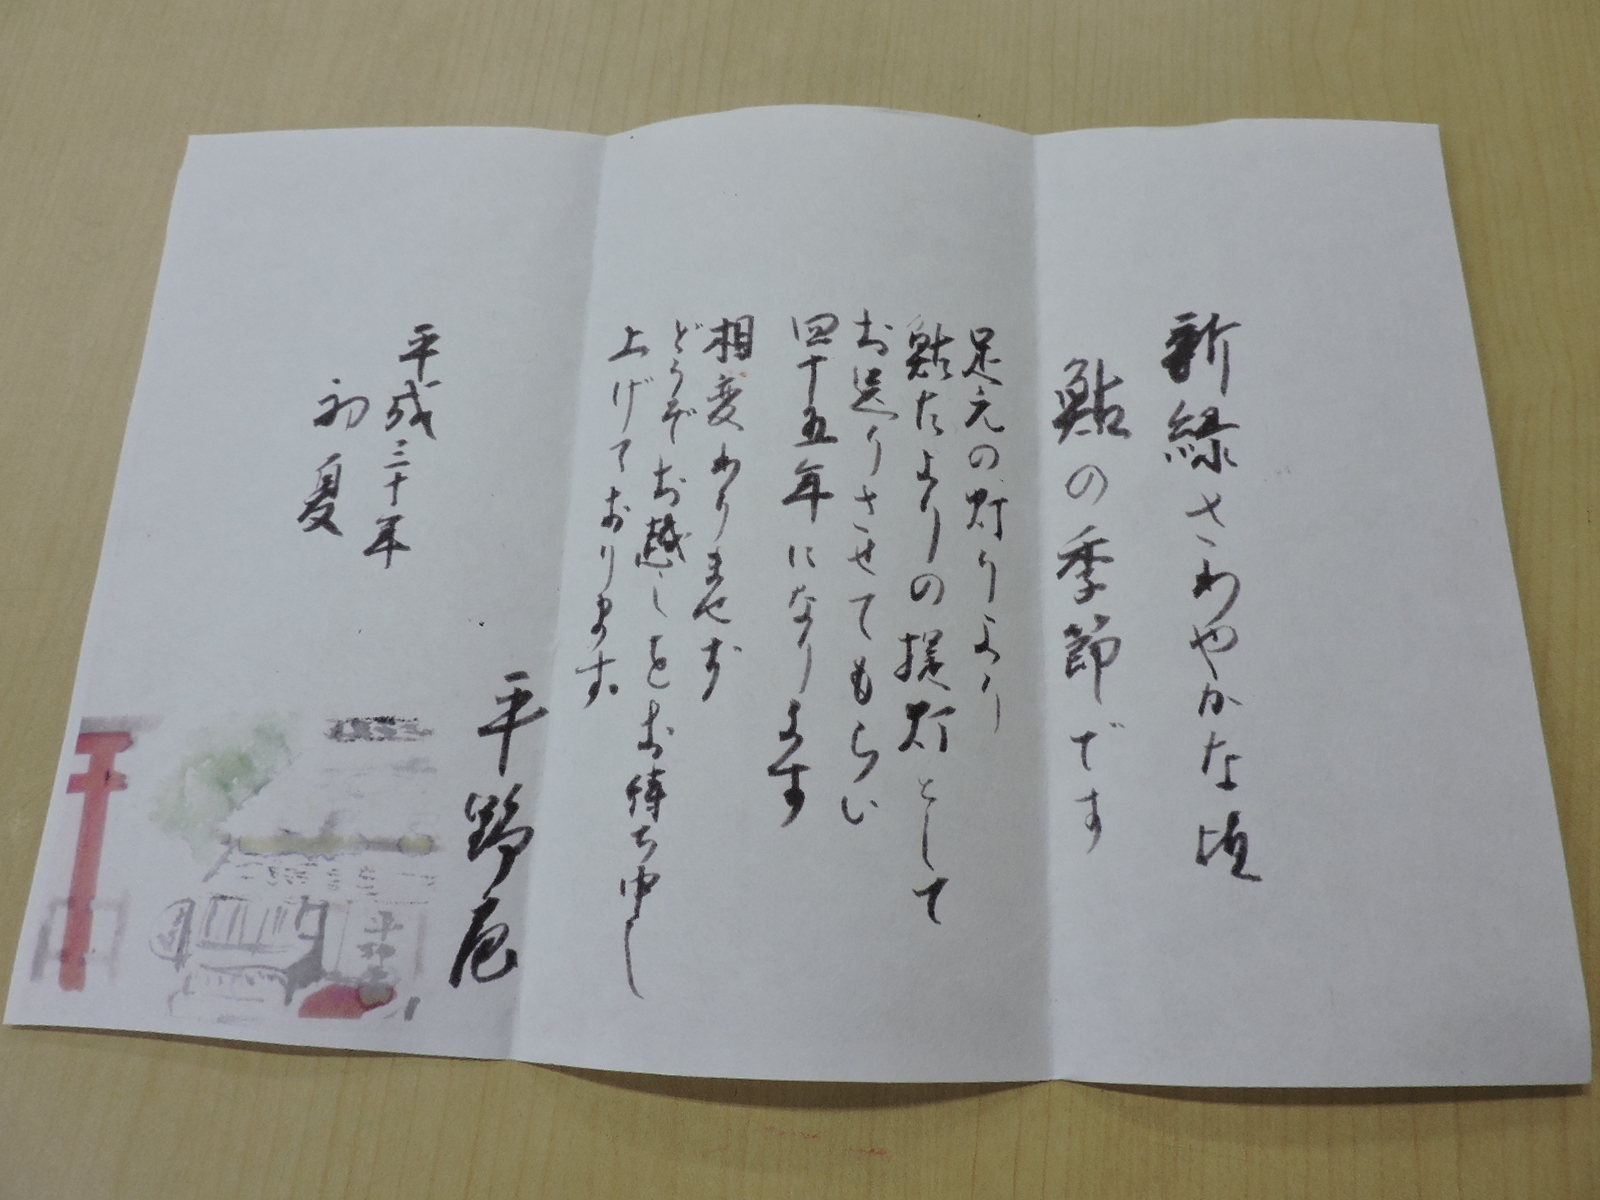 新緑さわやかな頃
鮎の季節です
足元の灯りより
鮎たよりの提灯として
お送りさせてもらい
四十五年になります
相変わりませず
どうぞお越しをお待ち申し
上げております。
平成三十年
初夏
平野屋